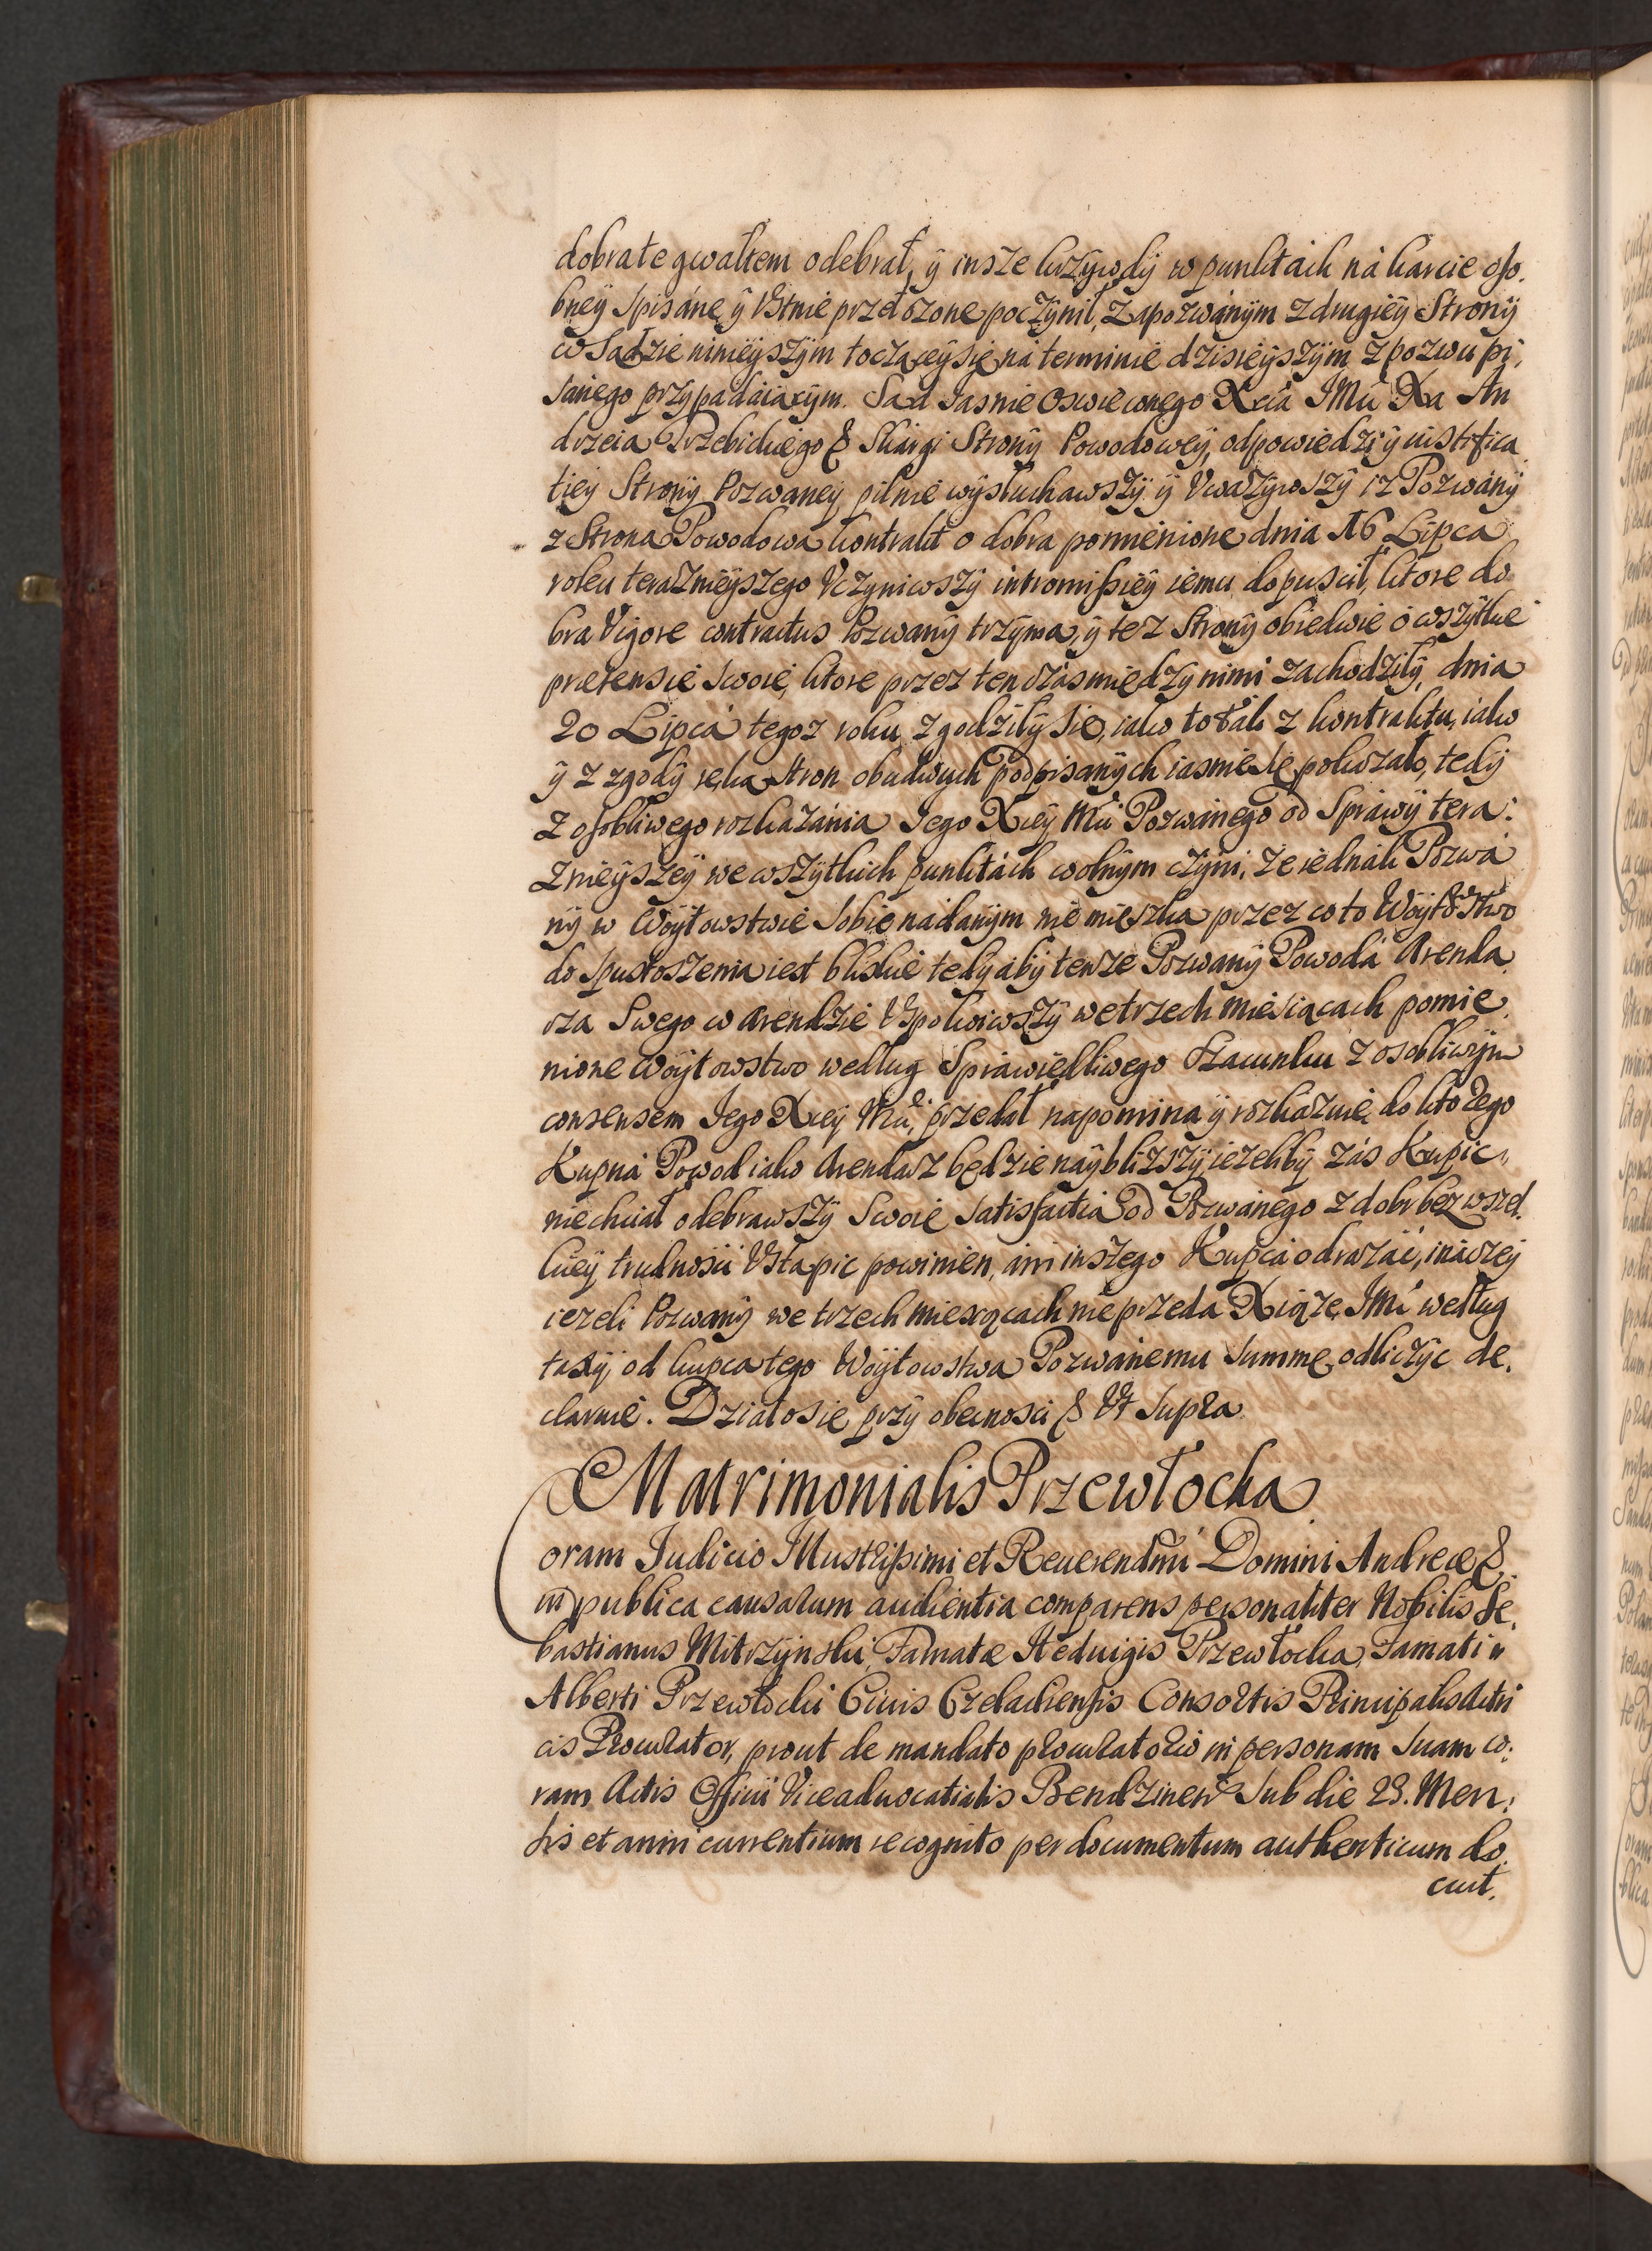 dobra te gwałtem odebrał, ÿ insze krzÿwdÿ w punktách ná karcie oso.
bneÿ spisáne ÿ Vstnie przełozone poczÿnił, Zapozwánÿm z drugieÿ Stronÿ
w Sądzie ninieÿszÿm toczączeÿ się ná terminie dzisieÿszÿm z pozwu pi,
sanego przypadáiącÿm. Sąd Jasnie Oswieconego Xcia JMci Xa An
drzeia Trzebickiego & Skárgi Stronÿ Powodoweÿ, odpowiedzi ÿ iustifica
tieÿ Stronÿ Pozwaneÿ pilnie wÿsłuchawszÿ ÿ Vważÿwszÿ iż Pozwánÿ
z Stroną Powodową kontrakt o dobra pomienione dnia 16 Lipca
roku teraznieÿszego Vczyniwszÿ intromissieÿ iemu dopuscił, ktore do
bra Vigore contractus Pozwanÿ trzÿma, ÿ tez Stronÿ obiedwie o wszÿtkie
pretensie swoie, ktore przez ten czás międzÿ nimi zachodziłÿ, dnia
20 Lipcá tegoz roku zgodziłÿ się, iako to ták z kontraktu, iako
ÿ z zgodÿ ręką stron obudwuch podpisanÿch iasnie się pokazało, tedÿ
z osobliwego roskazánia Jego Xceÿ Mci Pozwánego od Spráwÿ tera:
znieÿszeÿ we wszÿtkich punktách wolnÿm czÿni, ze iednák Pozwá
nÿ w Woÿtowstwie sobie nádanÿm nie mieszka przez co to Woÿtowstwo
do spustoszenia iest bliskie tedÿ abÿ tenze Pozwanÿ Powodá Arenda
rza Swego w Arendzie Vspokoiwszÿ we trzech miesiącach pomie
nione Woÿtowstwo według Spráwiedliwego szacunku z osobliwÿm
consensem Jego Xceÿ Mci, przedał napomina ÿ roskazuie do ktorego
Kupná Powod iako Arendarz będzie naÿblizszÿ iezelibÿ zás Kupic
niechciał odebrawszÿ Swoię satisfactią od Pozwánego z dobr bez wszel.
kieÿ trudnosci Vstąpic powinien, áni inszego Kupcá odrazác, ináczeÿ
iezeli Pozwanÿ we trzech miesiącach nie przeda Xiąże JMc według
taxÿ, od kupca tego Woÿtowstwa Pozwánemu summę odliczÿc de,
claruie. Działo sie przÿ obecnosci & Vt supra
Matrimonialis Przewłocka
Coram Judicio Illustrissimi et Reuerendmi Domini Andreæ &
in publica causarum audientia comparens personaliter Nobilis Se,
bastianus Mitrzÿnski, Famatæ Heduigis Przewłocka, Famati
Alberti Przewłocki Ciuis Czeladiensis Consortis Principalis Actri
cis Procurator, prout de mandato procuratorio in personam suam co:
ram Actis Officii Viceaduocatialis Bendzinen sub die 28. Men:
sis et anni currentium recognito per documentum authenticum do
cuit.